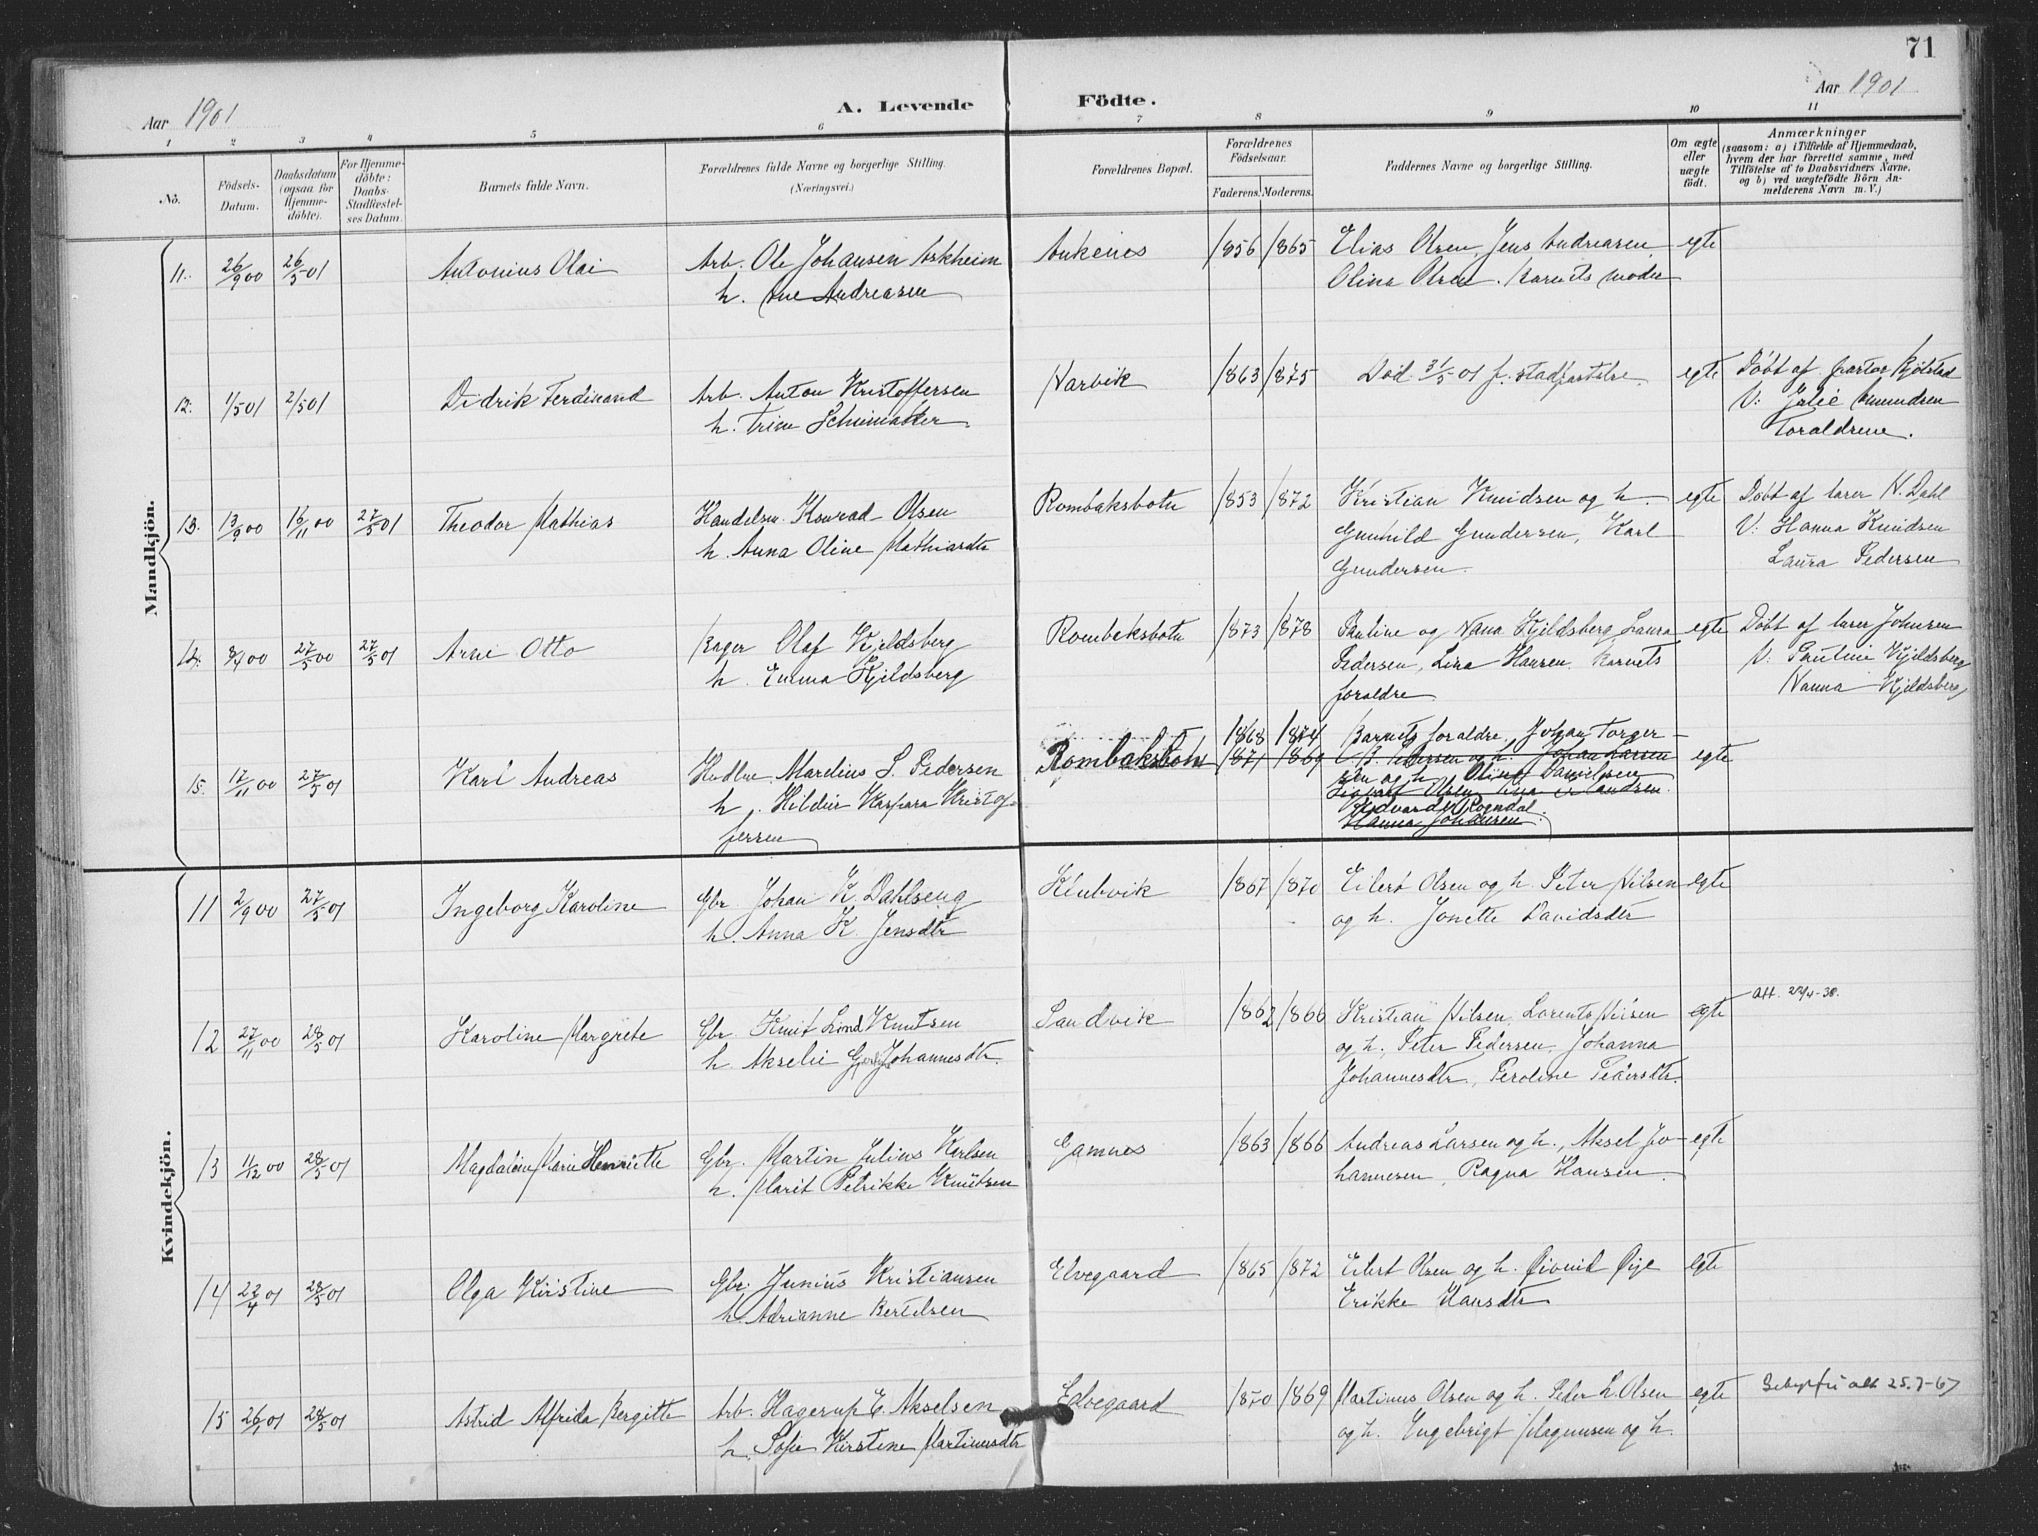 71
Aar 1901
A. Levende Födte.
Aar 1901
1 2 3 4 5 6 7 8 9 10 11
No.
Födsels-Datum.
Daabsdatum (ogsaa for Hjemme-döbte).
For Hjemme-döbte: Daabs-Stadfæstel-ses Datum.
Barnets fulde Navn.
Forældrenes fulde Navne og borgerlige Stilling.
(Næringsvei.)
Forældrenes Bopæl.
Forældrenes Födselsaar.
Faderens. Moderens.
Faddernes Navne og borgerlige Stilling.
Om ægte eller uægte födt.
Anmærkninger
(saasom: a) i Tilfælde af Hjemmedaab,
hvem der har forrettet samme, med
Tilföielse af to Daabsvidners Navne,
og b) ved uægtefödte Börn An-
melderens Navn m. V.)
Mandkjön.
11. 26/9 00 26/5 01 Antonius Olai Arb. Ole Johansen Askheim Ankenes 1856 1865 Elias Olsen, Jens Andreasen egte
h. Ane Andreasen Olina Olsen. Barnets moder
12. 1/5 01 2/5 01 Didrik Ferdinand Arb. Anton Kristoffersen Narvik 1863 1875 Död 31/5 01 f. stadfæstelse. egte Döbt af pastor Kjölstad
h. Trine Schumakker V: Julie Amundsen
Foraldrene.
13. 13/9 00 16/11 00 27/5 01 Theodor Mathias Handelsm. Konrad Olsen Rombaksbotn 1853 1872 Kristian Knudsen og h. egte Döbt af lærer N. Dahl
h. Anna Oline Mathiasdtr Gunhild Gundersen, Karl V: Hanna Knudsen
Gundersen. Laura Pedersen
14. 8/4 00 27/5 00 27/5 01 Arne Otto Bager Olaf Kjeldsberg Rombaksbotn 1873 1878 Pauline og Nana Kjeldsberg Laura egte Döbt af lærer Johnsen
h. Emma Kjeldsberg Pedersen, Lina Hansen, Barnets V: Pauline Kjeldsberg
foraldre Nanna Kjeldsberg
1868 1874 Barnets foraldre, Johan Torger-
15. 17/11 00 27/5 01 Karl Andreas Marelius L. Pedersen Rombaksbotn 1871 1869 Pedersen og h. Johan Larsen egte
h. Hildur Kaspara Kristof- sen og h. Oline Danielsen
Olsen
fersen Edvard Rogndal.
Hanna Johansen
Kvindekjön.
11 2/9 00 27/5 01 Ingeborg Karoline Gbr. Johan K. Dahlseng Klubvik 1867 1870 Eilert Olsen og h. Peter Nilsen egte
h. Anna K. Jensdtr og h. Jonette Davidsdtr
12 27/11 00 28/5 01 Karoline Margrete Gbr. Knut Lind Knutsen Sandvik 1862 1866 Kristian Nilsen, Lorents Nilsen egte Att. 22/4-38.
h. Akselie Johannesdtr. og h., Peter Pedersen, Johanna
Johannesdtr, Peroline Pedersdtr.
13 11/12 00 28/5 01 Magdalene Marie Henriette Gbr. Martin Julius Karlsen Gamnes 1863 1866 Andreas Larsen og h., Aksel Jo- egte
h. Marit Petrikke Knutsen hannesen, Ragna Hansen
14 22/4 01 28/5 01 Olga Kristine Gbr. Junius Kristiansen Elvegaard 1865 1872 Eilert Olsen og h. Öivind Öije egte
h. Adrianne Bertelsen Erikke Hansdtr
15 26/1 01 28/5 01 Astrid Alfrida Bergitte Arb. Hagerup E. Akselsen Elvegaard 1870 1869 Martinus Olsen og h. Peder L. Olsen egte Gebyrfri att 25.7-67
h. Sofie Kirstine Martinusdtr og h. Engebrigt Magnusen og h.